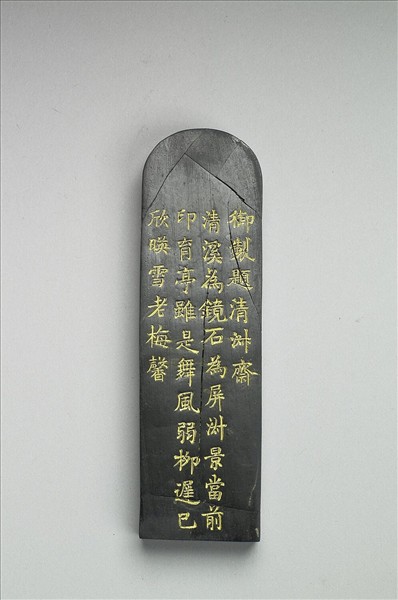 御製題清淑齋
清溪為鏡石為屏淑景當前
印育亭雖是舞風弱柳遲已
欣暎雪老梅馨